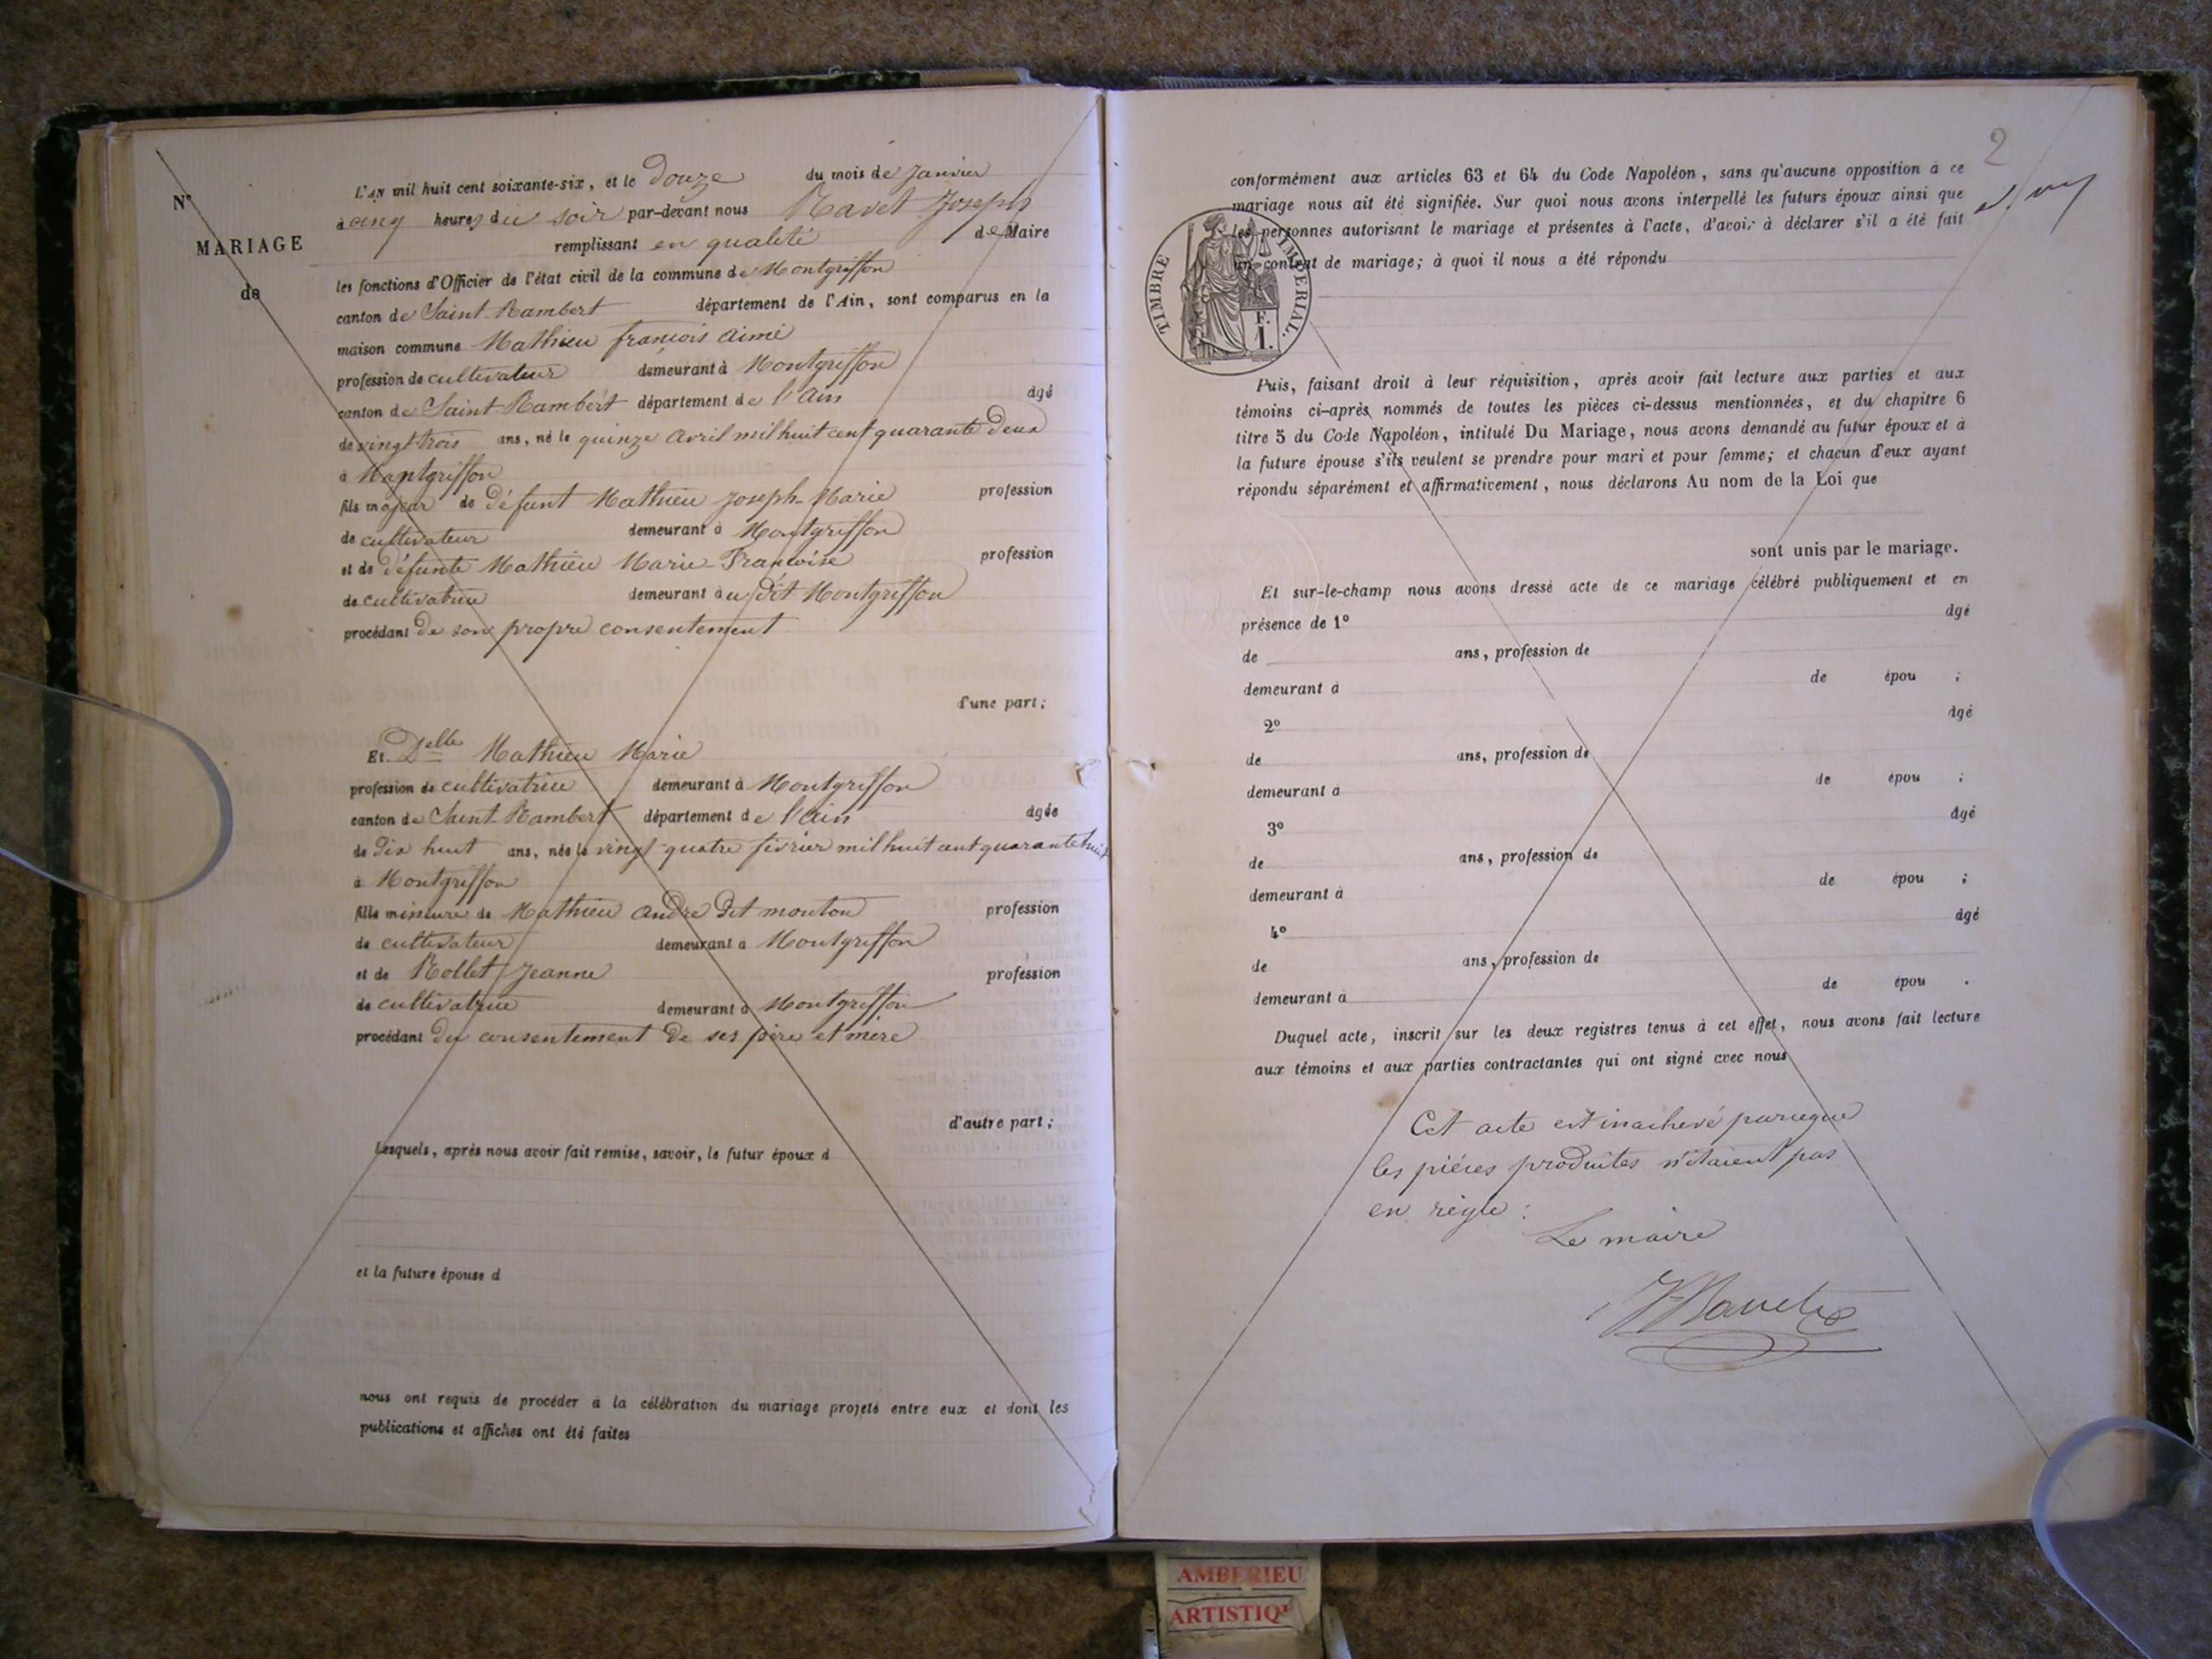 N°
MARIAGE
de
L'AN mil huit cent soixante-six, et le Douze du mois de Janvier
à cinq heures du soir par-devant nous Ravet Joseph
remplissant en qualité de Maire
les fonctions d'Officier de l'état civil de la commune de Montgriffon
canton de Saint-Rambert département de l'Ain, sont comparus en la
maison commune Mathieu françois aimé
profession de cultivateur demeurant à Montgriffon
canton de Saint-Rambert département de l'ain âgé
de vingt trois ans, né le quinze avril mil huit cent quarante Deux
à Montgriffon
fils majeur de défunt Mathieu Joseph-Marie profession
de cultivateur demeurant à Montgriffon
et de défunte Mathieu Marie-Françoise profession
de cultivatrice demeurant au dit Montgriffon
procédant de son propre consentement
d'une part;
Et Delle Mathieu Marie
profession de cultivatrice demeurant à Montgriffon
canton de Saint-Rambert département de l'ain âgée
de dix huit ans, née le vingt-quatre février mil huit cent quarante huit
à Montgriffon
fille mineure de Mathieu andré dit mouton profession
de cultivateur demeurant à Montgriffon
et de Rollet Jeanne profession
de cultivatrice demeurant à Montgriffon
procédant du consentement de ses père et mère
d'autre part;
Lesquels, après nous avoir fait remise, savoir, le futur époux d
et la future épouse d
nous ont requis de procéder à la célébration du mariage projeté entre eux et dont les
publications et affiches ont été faites
2
conformément aux articles 63 et 64 du Code Napoléon, sans qu'aucune opposition à ce
mariage nous ait été signifiée. Sur quoi nous avons interpellé les futurs époux ainsi que
les personnes autorisant le mariage et présentes à l'acte, d'avoir à déclarer s'il a été fait
un contrat de mariage; à quoi il nous a été répondu
TIMBRE IMPÉRIAL.
F.
1.
Puis, faisant droit à leur réquisition, après avoir fait lecture aux parties et aux
témoins ci-après nommés de toutes les pièces ci-dessus mentionnées, et du chapitre 6
titre 5 du Code Napoléon, intitulé Du Mariage, nous avons demandé au futur époux et à
la future épouse s'ils veulent se prendre pour mari et pour femme; et chacun d'eux ayant
répondu séparément et affirmativement, nous déclarons Au nom de la Loi que
sont unis par le mariage.
Et sur-le-champ nous avons dressé acte de ce mariage célébré publiquement et en
présence de 1° âgé
de ans, profession de
demeurant à de épou ;
2° âgé
de ans, profession de
demeurant à de épou ;
3° âgé
de ans, profession de
demeurant à de épou ;
4° âgé
de ans, profession de
demeurant à de épou .
Duquel acte, inscrit sur les deux registres tenus à cet effet, nous avons fait lecture
aux témoins et aux parties contractantes qui ont signé avec nous
Cet acte est inachevé parceque
les pièces produites n'étaient pas
en règle :
Le maire
AMBERIEU
ARTISTIQ